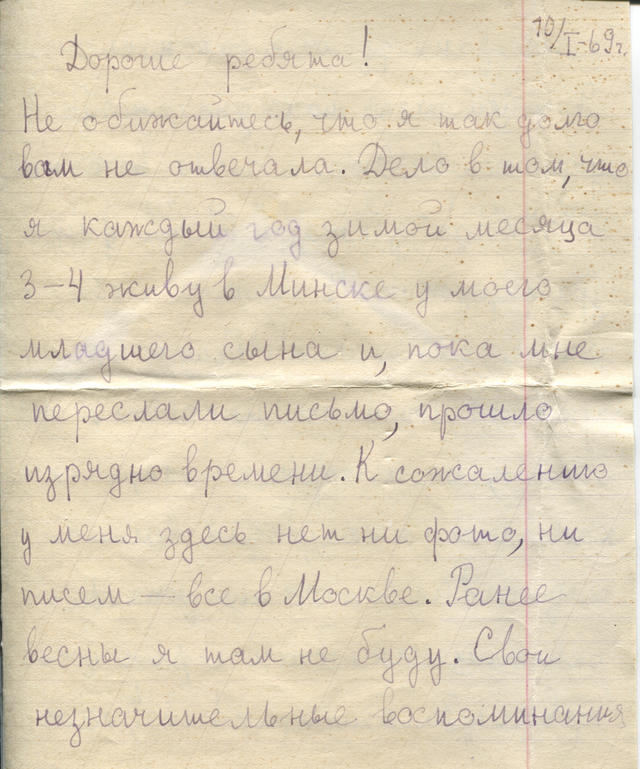 10/I-69г.
Дорогие ребята!
Не обижайтесь, что я так долго
вам не отвечала. Дело в том, что
я каждый год зимой месяца
3-4 живу в Минске у моего
младшего сына и, пока мне
переслали письмо, прошло
изрядно времени. К сожалению
у меня здесь нет ни фото, ни
писем — все в Москве. Ранее
весны я там не буду. Свои
незначительные воспоминания